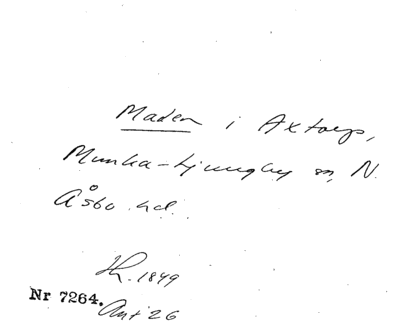 Maden i Axtorp,
Munka-Ljungby sn, N.
Åsbo hd.
1849
Nr 7264.
26